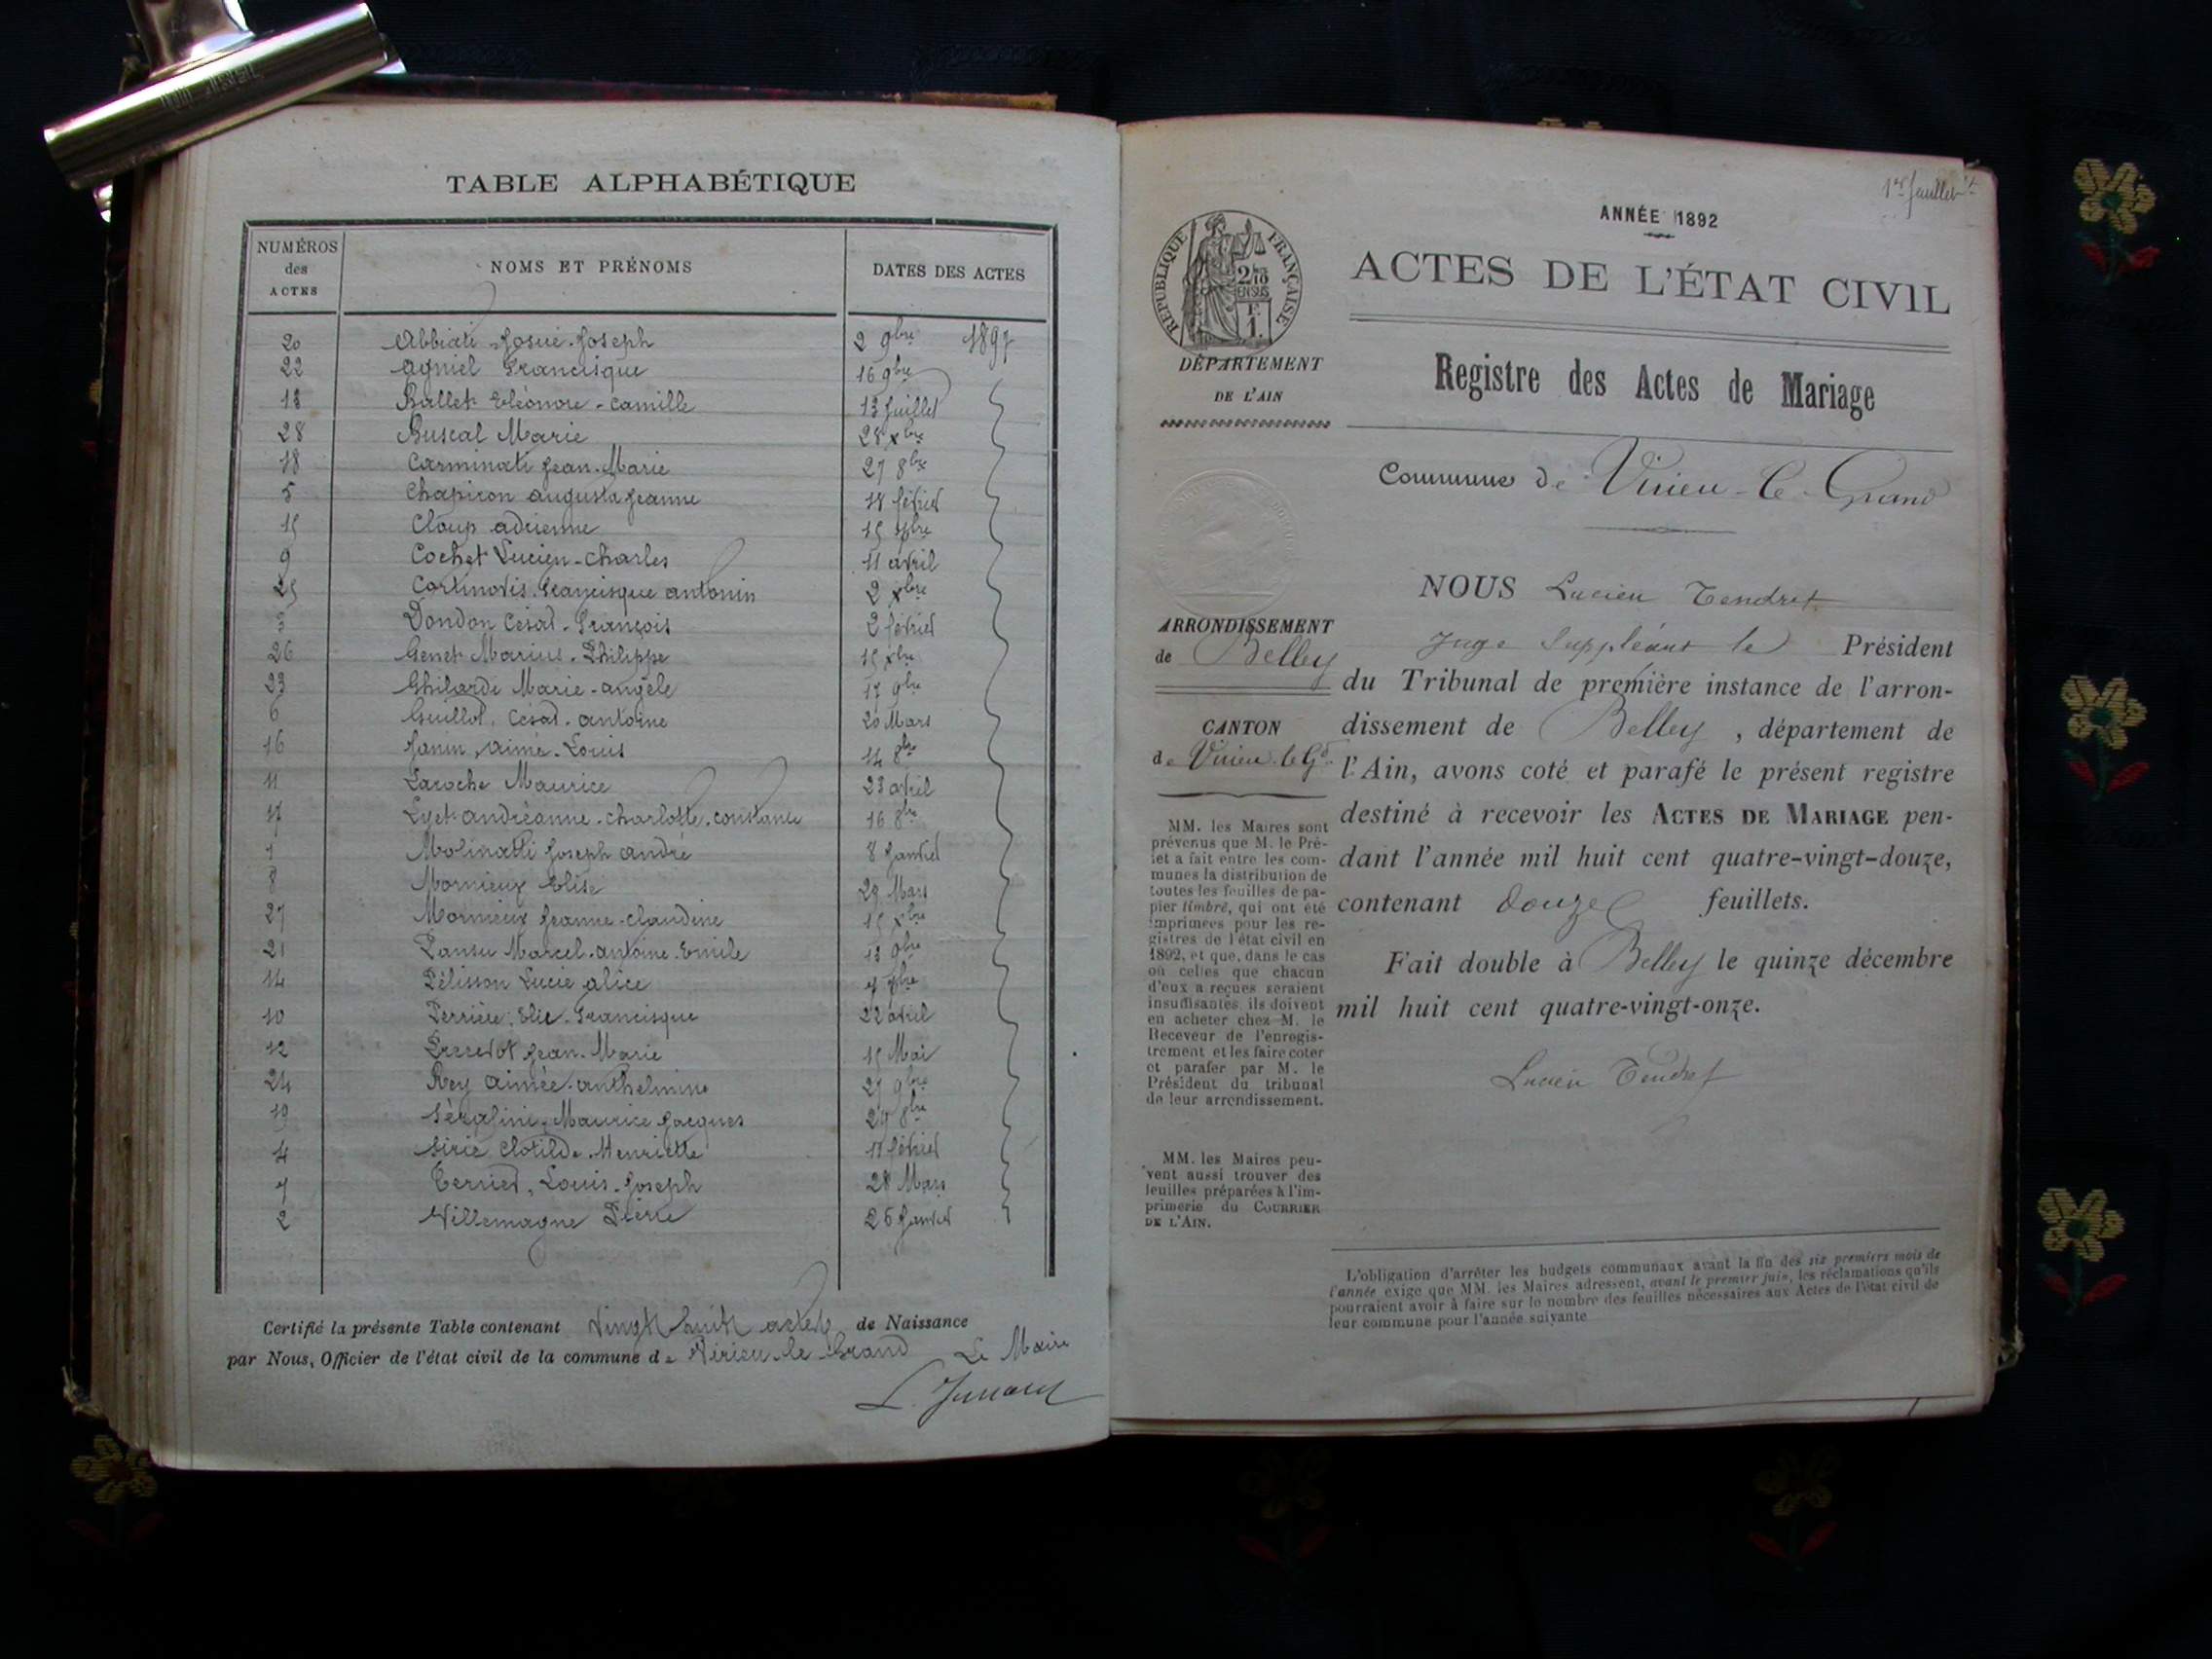 TABLE ALPHABÉTIQUE
NUMÉROS des ACTES NOMS ET PRÉNOMS DATES DES ACTES
20 Abbiati Josué-Joseph 2 9bre 1897
22 Agniel Francisque 16 9bre
13 Ballet Eléonore-Camille 13 Juillet
28 Buscal Marie 28 xbre
18 Carminati Jean-Marie 27 8bre
5 Chapiron Augusta Jeanne 18 février
15 Cloup Adrienne
9 Cochet Lucien-Charles 11 avril
25 Cortinovis Francisque antonin 2 xbre
3 Dondon César-François 2 février
26 Genet Marius-Philippe 15 xbre
23 Ghilardi Marie-angèle 17 9bre
6 Guillot César-antoine 20 Mars
16 Janin aimé-Louis 14 8bre
11 Laroche Maurice 23 avril
17 Lyet andréanne-charlotte-constance 16 8bre
1 Molinatti Joseph andré 8 Janvier
8 Mornieux Elise 29 Mars
27 Mornieux Jeanne-claudine 15 xbre
21 Pansu Marcel-antoine-Emile 13 9bre
14 Pélisson Lucie alice 7bre
10 Perrière Elie-Francisque 22 avril
12 Jean-Marie 15 Mai
24 Rey aimée-anthelmine 27 9bre
19 Sérafini Maurice Jacques 29 8bre
4 Sirie Clotilde-Henriette 17 février
7 Terrier, Louis-Joseph 28 Mars
2 Villemagne Pierre 26 Janvier
Certifié la présente Table contenant vingt huit actes de Naissance
par Nous, Officier de l'état civil de la commune de Virieu-le-Grand Le Maire
1er feuillet
ANNÉE 1892
RÉPUBLIQUE FRANÇAISE
2/10 EN SUS
F. 1.
ACTES DE L'ÉTAT CIVIL
DÉPARTEMENT
DE L'AIN
Registre des Actes de Mariage
Commune de Virieu-le-Grand
NOUS Lucien Tendret
Juge Suppléant le Président
ARRONDISSEMENT
de Belley
du Tribunal de première instance de l'arron-
dissement de Belley, département de
l'Ain, avons coté et parafé le présent registre
destiné à recevoir les ACTES DE MARIAGE pen-
dant l'année mil huit cent quatre-vingt-douze,
contenant douze feuillets.
Fait double à Belley le quinze décembre
mil huit cent quatre-vingt-onze.
Lucien Tendret
CANTON
de Virieu-le-Gd
MM. les Maires sont
prévenus que M. le Pré-
fet a fait entre les com-
munes la distribution de
toutes les feuilles de pa-
pier timbré, qui ont été
imprimées pour les re-
gistres de l'état civil en
1892, et que, dans le cas
où celles que chacun
d'eux a reçues seraient
insuffisantes ils doivent
en acheter chez M. le
Receveur de l'enregis-
trement et les faire coter
et parafer par M. le
Président du tribunal
de leur arrondissement.
MM. les Maires peu-
vent aussi trouver des
feuilles préparées à l'im-
primerie du COURRIER
DE L'AIN.
L'obligation d'arrêter les budgets communaux avant la fin des six premiers mois de
l'année exige que MM. les Maires adressent, avant le premier juin, les réclamations qu'ils
pourraient avoir à faire sur le nombre des feuilles nécessaires aux Actes de l'état civil de
leur commune pour l'année suivante